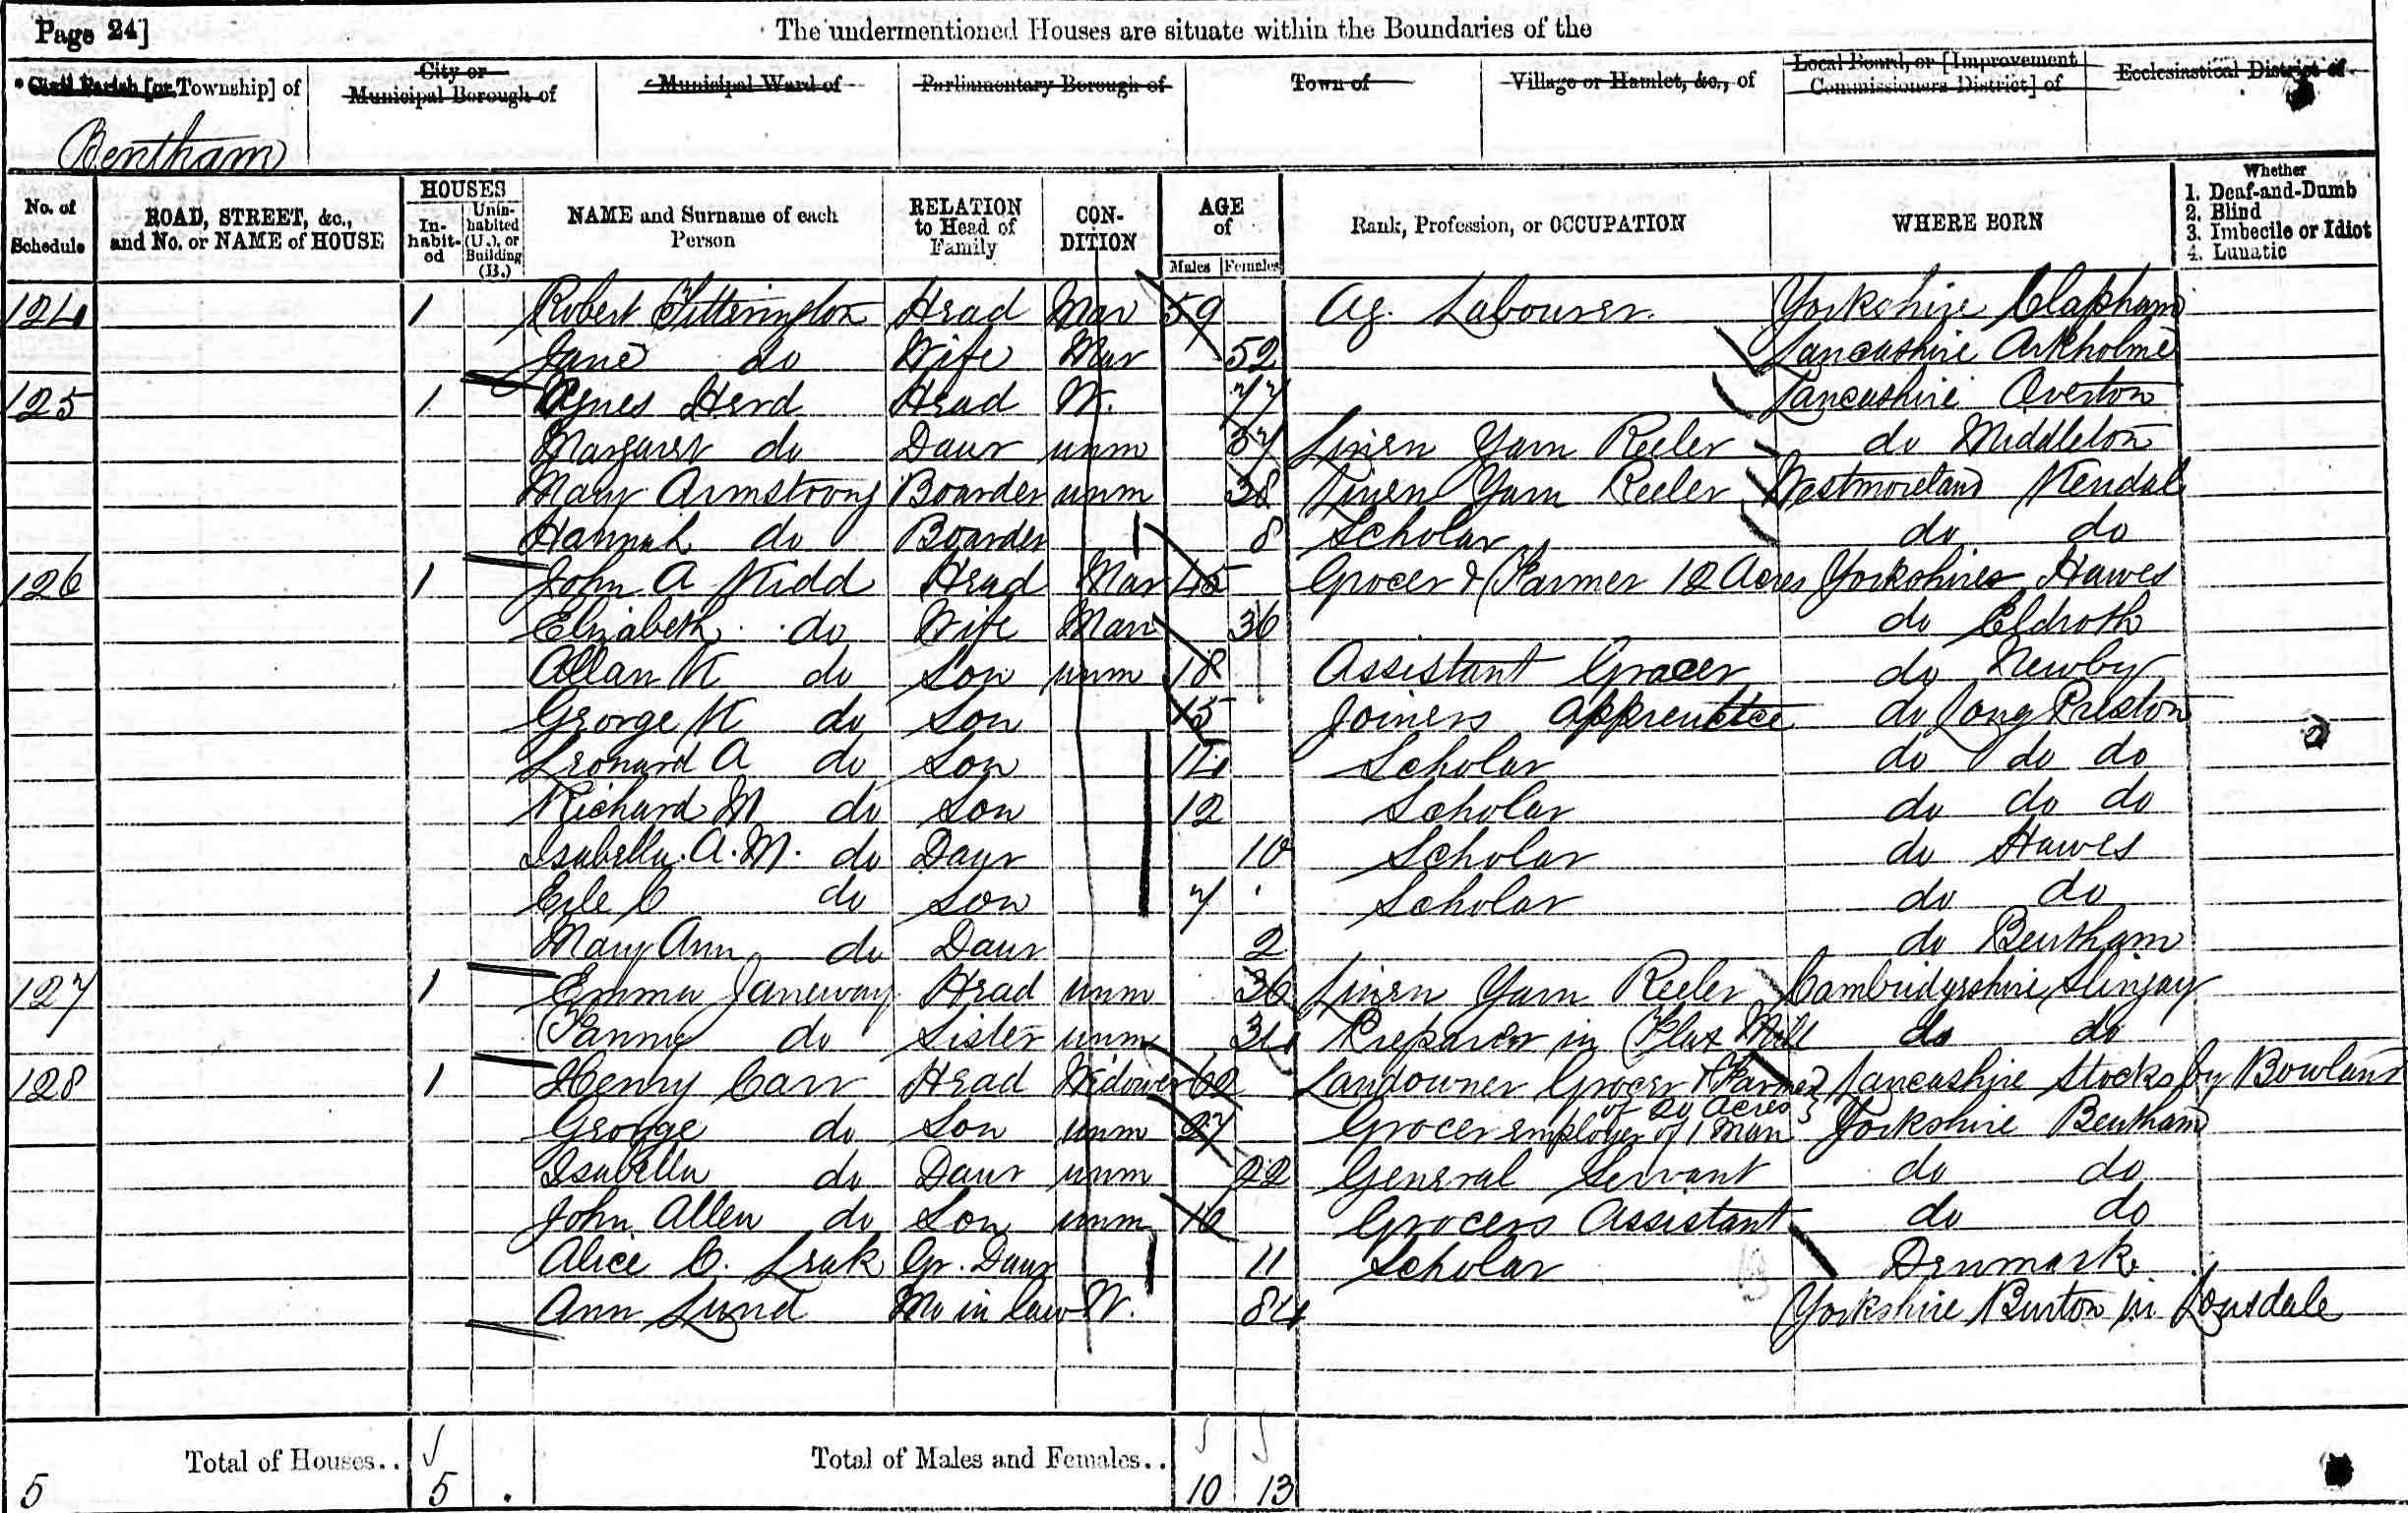 Page 24]
The undermentioned Houses are situate within the Boundaries of the
Civil Parish [or Township] of
City or Municipal Borough of
Municipal Ward of
Parliamentary Borough of
Town of
Village or Hamlet, &c., of
Local Board, or [Improvement Commissioners District] of
Ecclesiastical District of
Bentham
No. of Schedule
ROAD, STREET, &c., and No. or NAME of HOUSE
HOUSES
In-habit-ed
Unin-habited (U.), or Building (B.)
NAME and Surname of each Person
RELATION to Head of Family
CON-DITION
AGE of
Males Females
Rank, Profession, or OCCUPATION
WHERE BORN
Whether
1. Deaf-and-Dumb
2. Blind
3. Imbecile or Idiot
4. Lunatic
124 1 Robert Titterington Head Mar 59 Ag. Labourer Yorkshire Clapham
Jane do Wife Mar 52 Lancashire Arkholme
125 1 Agnes Herd Head W. 77 Lancashire Overton
Margaret do Daur unm 37 Linen Yarn Reeler do Middleton
Mary Armstrong Boarder unm 38 Linen Yarn Reeler Westmoreland Kendal
Hannah do Boarder 8 Scholar do do
126 1 John A Kidd Head Mar 45 Grocer & Farmer 12 Acres Yorkshire Hawes
Elizabeth do Wife Mar 36 do Eldroth
Allan K do Son unm 18 Assistant Grocer do Newby
George K do Son 15 Joiners Apprentice do Long Preston
Leonard A do Son 14 Scholar do do do
Richard M do Son 12 Scholar do do do
Isabella A. M. do Daur 10 Scholar do Hawes
C do Son 7 Scholar do do
Mary Ann do Daur 2 do Bentham
127 1 Emma Janeway Head unm 36 Linen Yarn Reeler Cambridgeshire
Fanny do Sister unm 34 Preparer in Flax Mill do do
128 1 Henry Carr Head Widower 62 Landowner Grocer & Farmer Lancashire Stocks by Bowland
of Acres
George do Son unm 27 Grocer employer of 1 Man Yorkshire Bentham
Isabella do Daur unm 22 General Servant do do
John Allen do Son unm 16 Grocers Assistant do do
Alice C. Gr. Daur 11 Scholar Denmark
Ann Lund Mo in law W. 84 Yorkshire Burton in Lonsdale
Total of Houses.. 5
Total of Males and Females.. 10 13
5